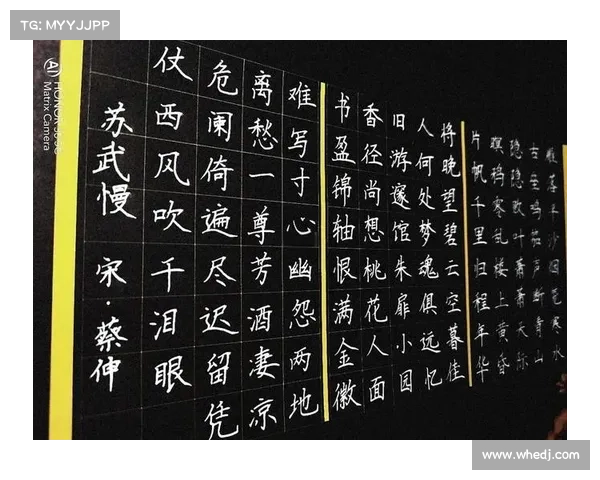 TG: MYYJJPP
雁落平沙烟笼寒水
古垒鸣笳声断青山
隐隐败叶萧萧天际
暝鸦零乱楼上黄昏
片帆千里归程年华
将晚望碧云空暮佳
人何处梦魂俱远忆
旧游邃馆朱扉小园
香径尚想桃花人面
书盈锦轴恨满金徽
难写寸心幽怨两地
离愁一尊芳酒凄凉
危阑倚遍尽迟留凭
仗西风吹干泪眼
苏武慢 宋·蔡伸
Matrix Camera
www.whedj.com